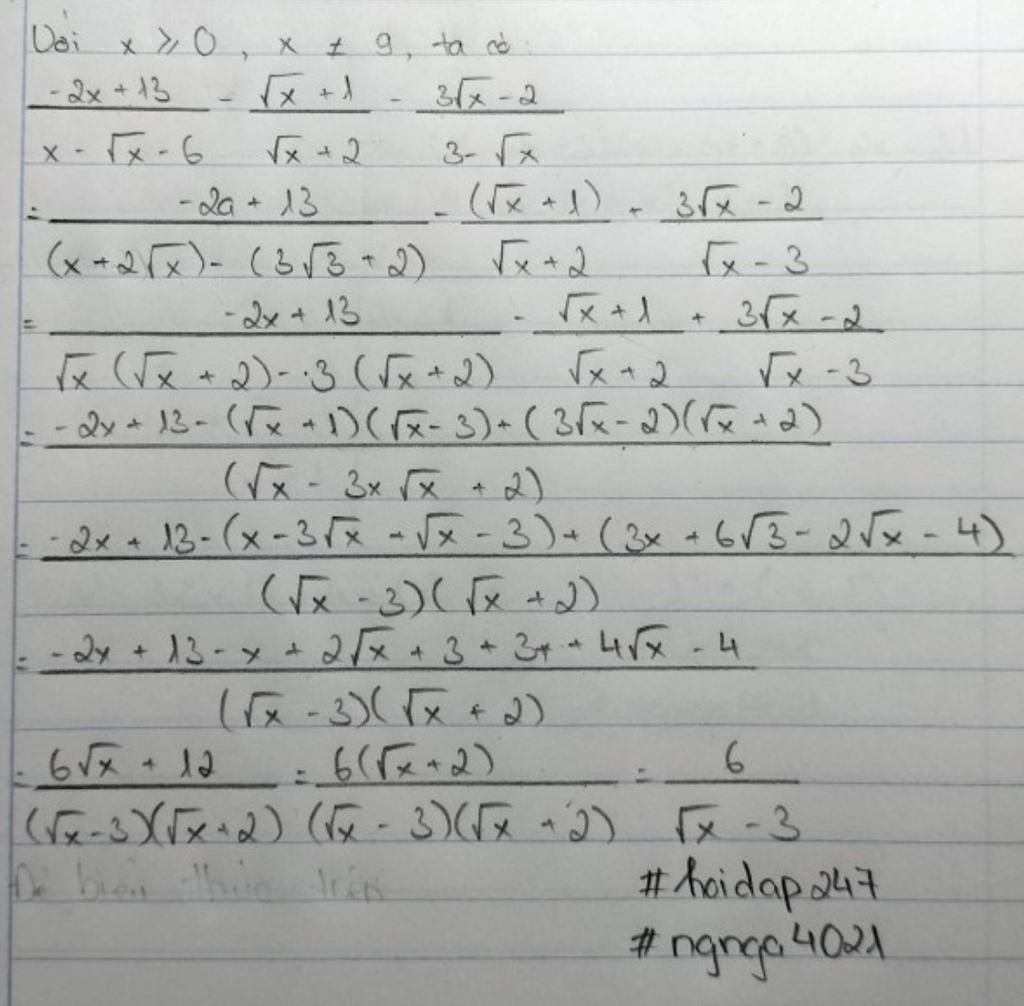 Với x ≥ 0, x ≠ 9, ta có:
(-2x + 13)/(x - √x - 6) - (√x + 1)/(√x + 2) - (3√x - 2)/(3 - √x)
= (-2a + 13)/((x + 2√x) - (3√3 + 2)) - (√x + 1)/(√x + 2) + (3√x - 2)/(√x - 3)
= (-2x + 13)/(√x (√x + 2) - 3 (√x + 2)) - (√x + 1)/(√x + 2) + (3√x - 2)/(√x - 3)
= (-2x + 13 - (√x + 1)(√x - 3) + (3√x - 2)(√x + 2))/(√x - 3x √x + 2)
= (-2x + 13 - (x - 3√x + √x - 3) + (3x + 6√3 - 2√x - 4))/((√x - 3)(√x + 2))
= (-2x + 13 - x + 2√x + 3 + 3x + 4√x - 4)/((√x - 3)(√x + 2))
= (6√x + 12)/((√x - 3)(√x + 2)) = (6(√x + 2))/((√x - 3)(√x + 2)) = 6/(√x - 3)
Để biểu thức trên
#hoidap247
#ngnga4021